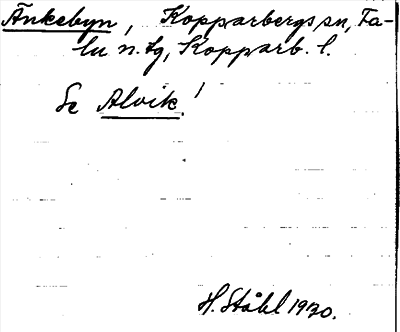 Änkebyn, Kopparbergs sn, Fa-
lu n. tg, Kopparb. l.
Se Alvik!
H. Ståhl 1920.